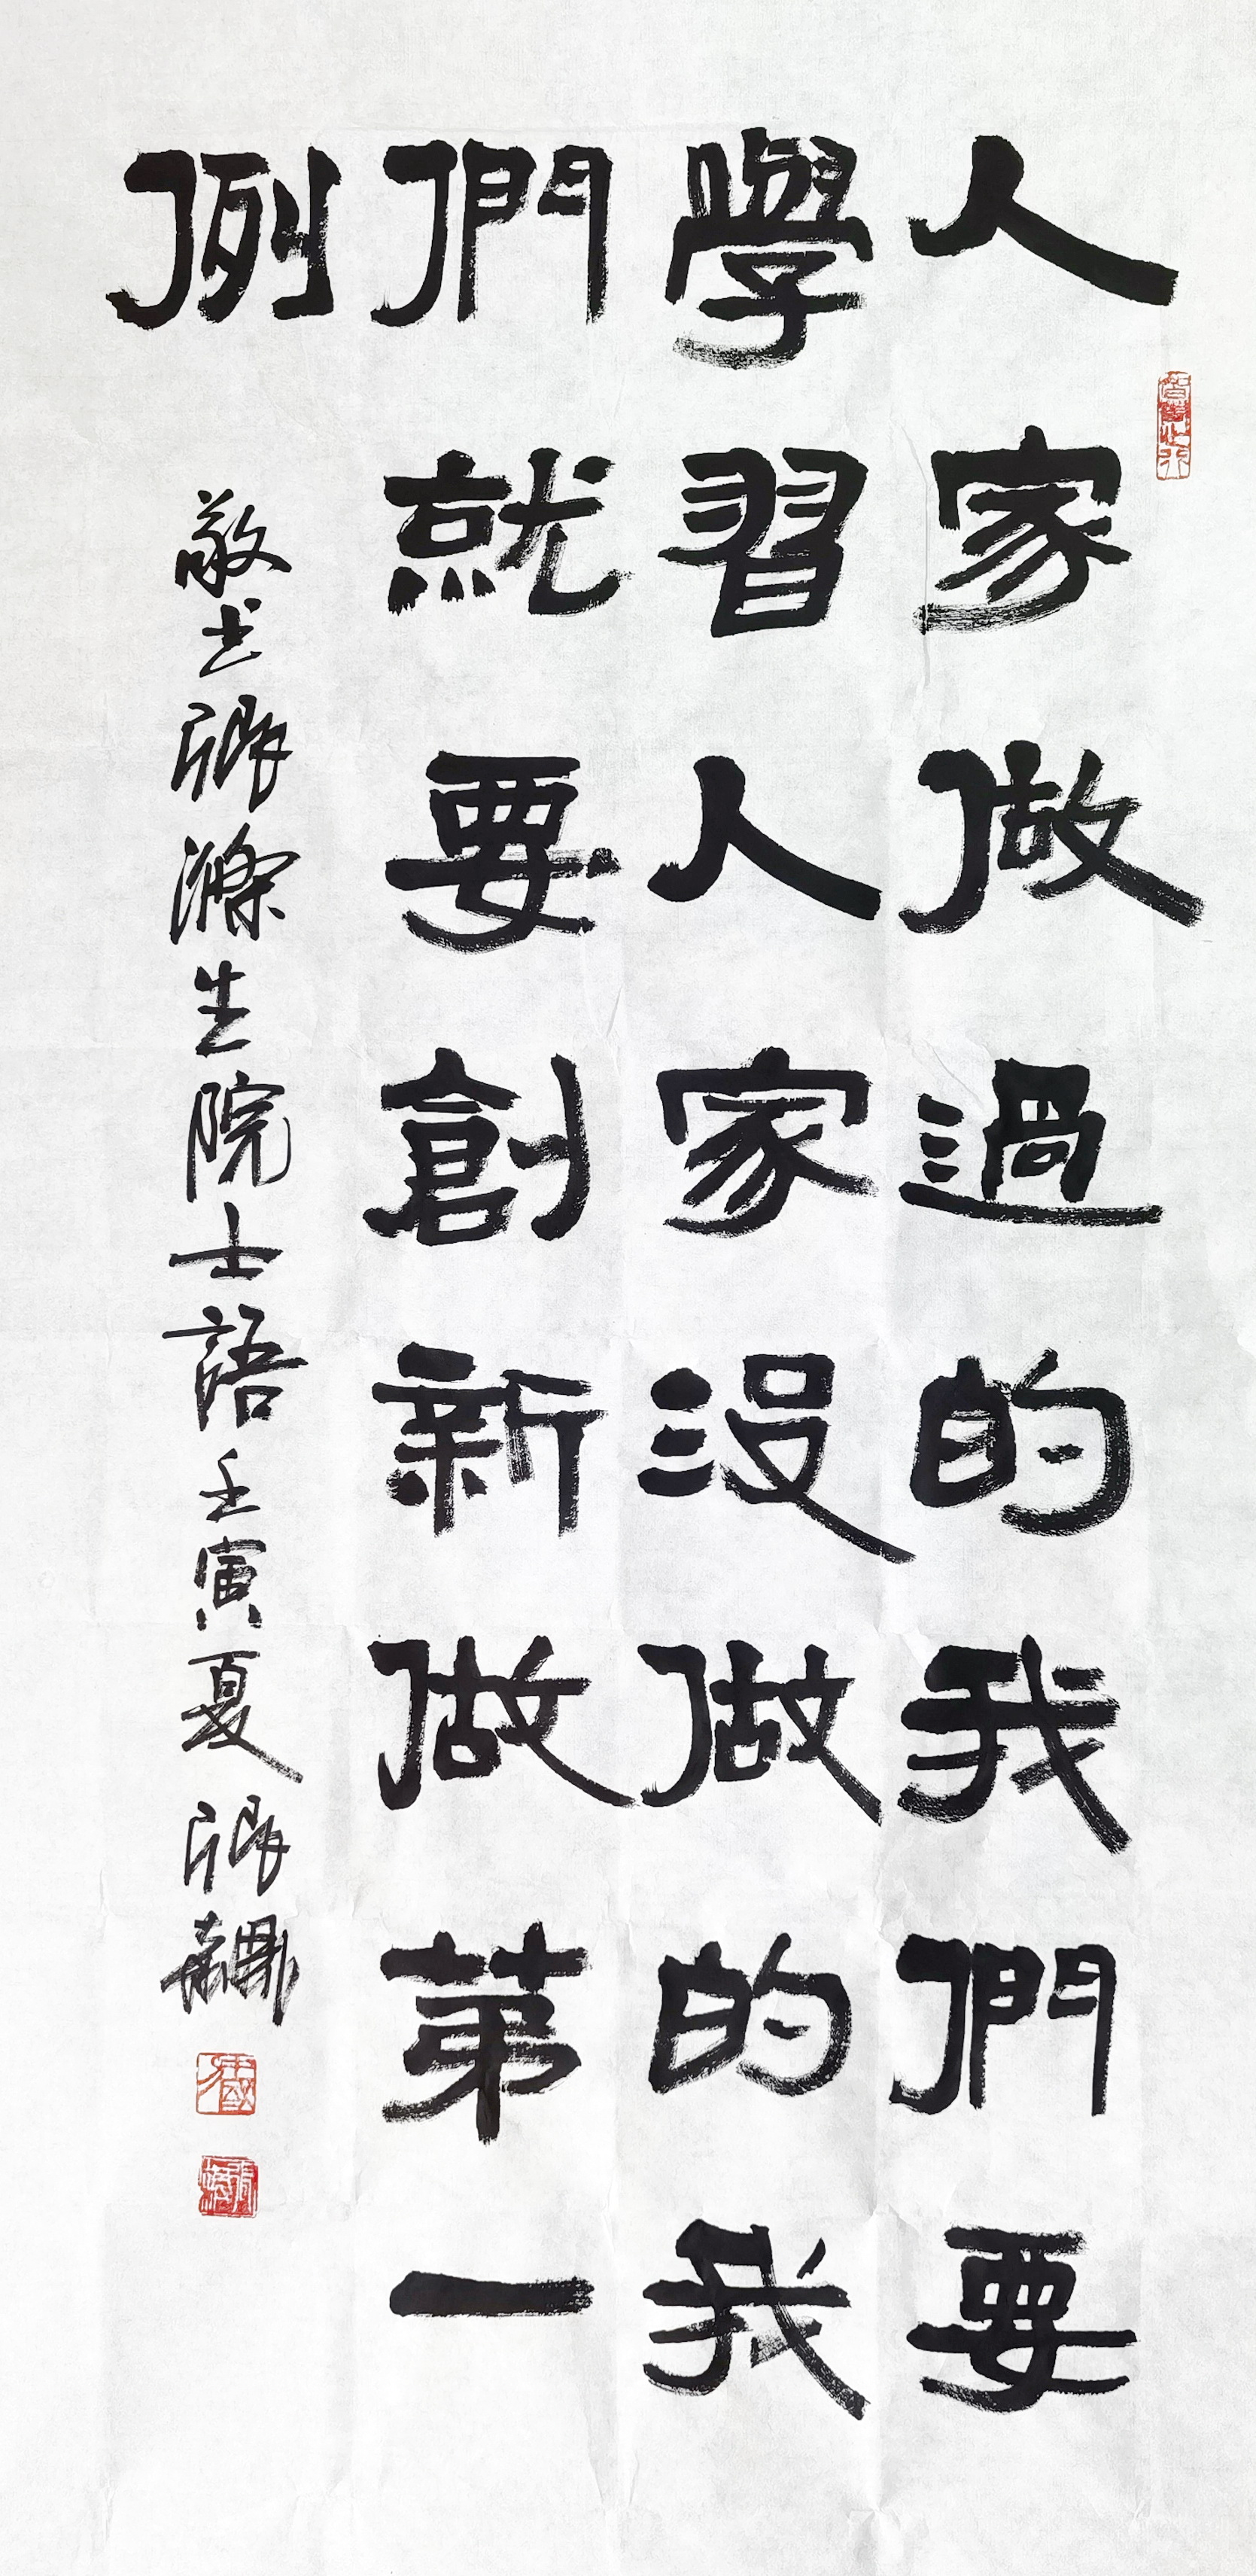 人家做過的我們要
學習人家沒做的我
們就要創新做第一
例
敬书張滌生院士語壬寅夏張